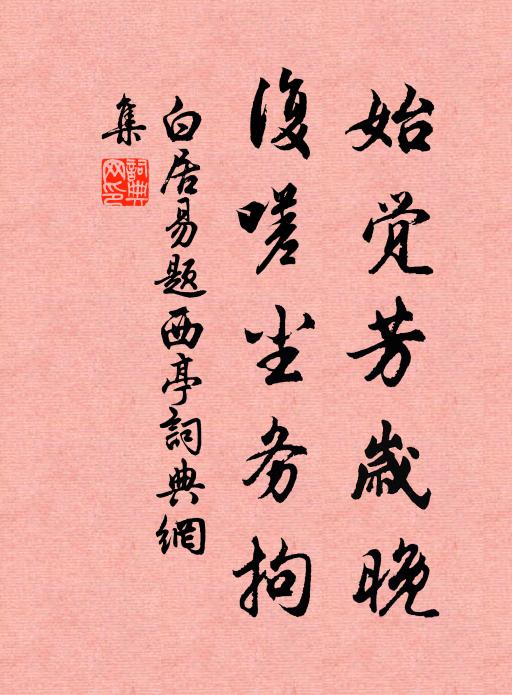 始觉芳岁晚
復嗟尘务拘
白居易题西亭詞典網
集
詞典网印